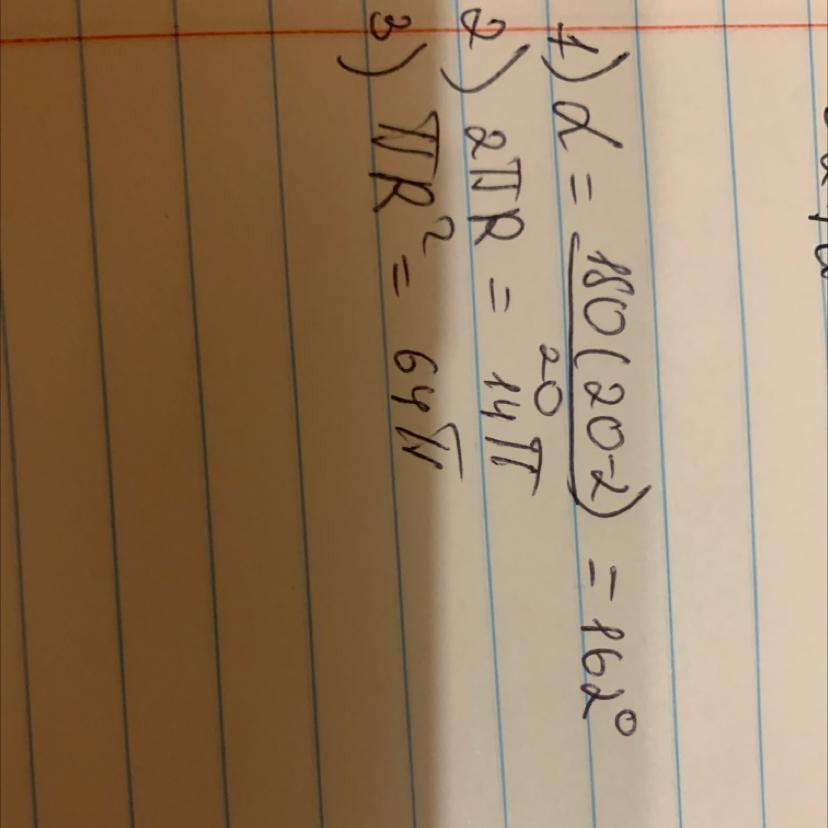 1) α = 180(20-2) / 20 = 162°
2) 2πR = 14π
3) πR² = 64π